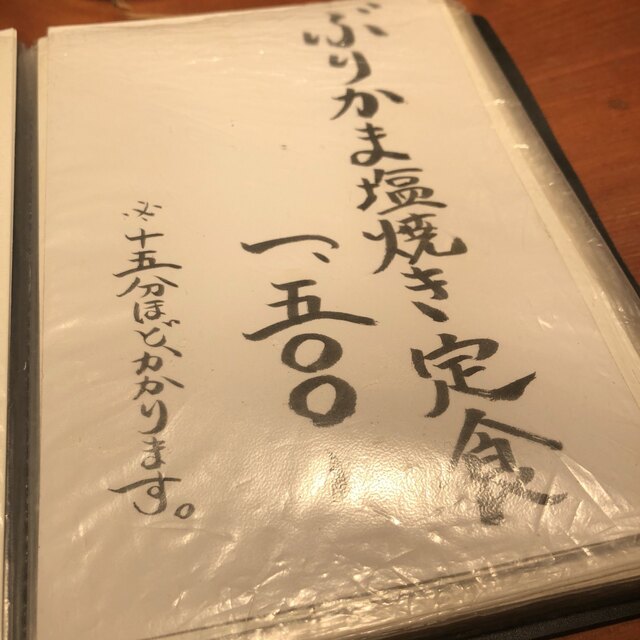 ぶりかま塩焼き定食
一、五〇〇
※十五分ほどかかります。